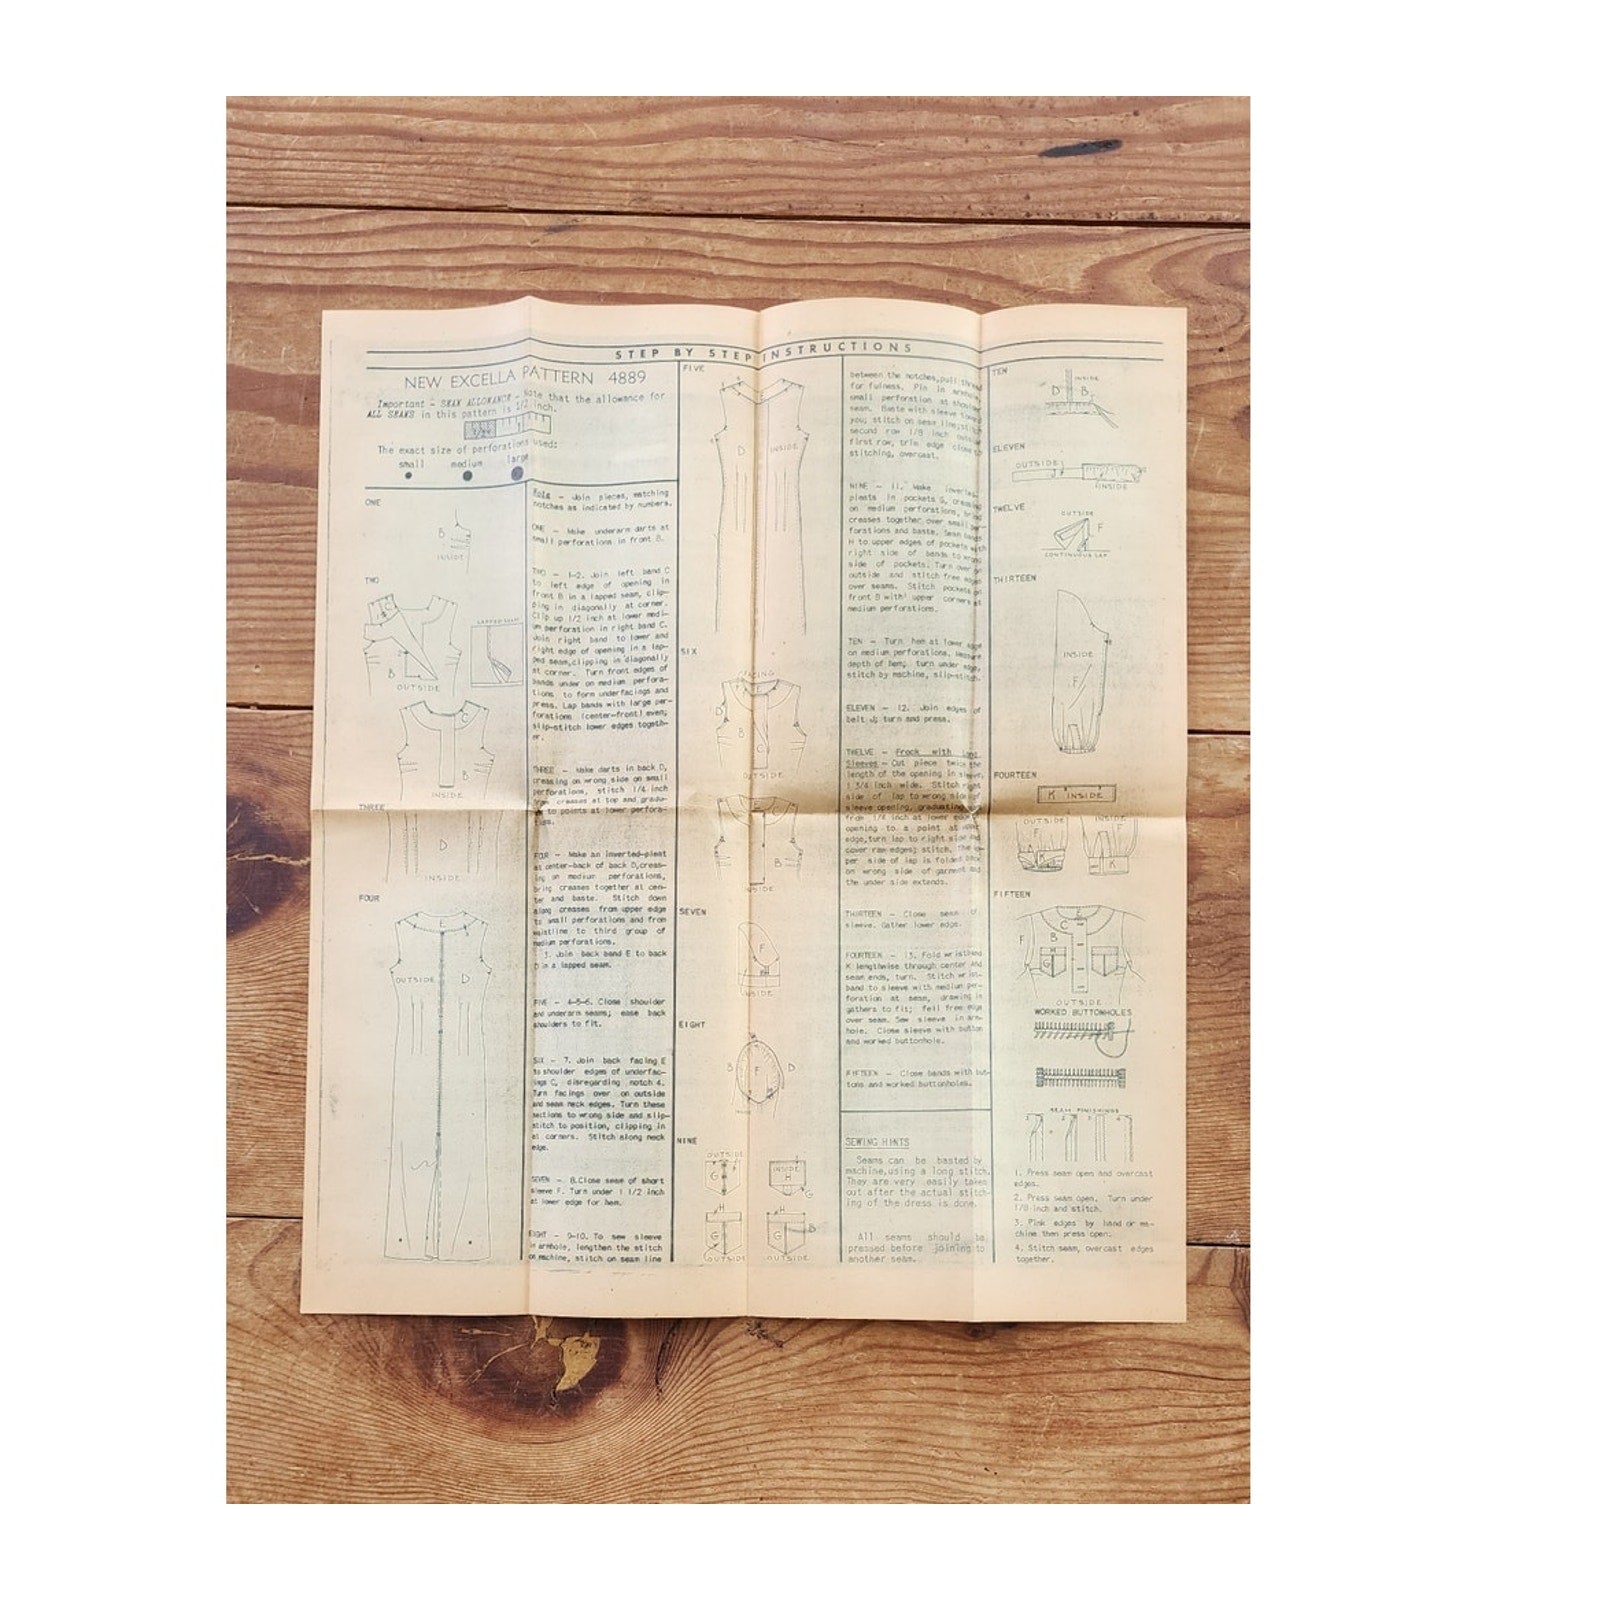 STEP BY STEP INSTRUCTIONS
NEW EXCELLA PATTERN 4889
Important - SEAM ALLOWANCE - Note that the allowance for
ALL SEAMS in this pattern is 1/2 inch.
The exact size of perforations used:
small medium large
ONE
B
INSIDE
TWO
C
B
OUTSIDE
LAPPED SEAM
C
B
INSIDE
THREE
D
INSIDE
FOUR
E
OUTSIDE D
- Join pieces, matching
notches as indicated by numbers.
ONE - Make underarm darts at
small perforations in front B.
TWO - 1-2. Join left band C
to left edge of opening in
front B in a lapped seam, clip-
ping in diagonally at corner.
Clip up 1/2 inch at lower medi-
um perforation in right band C.
Join right band to lower and
right edge of opening in a lap-
ped seam, clipping in diagonally
at corner. Turn front edges of
bands under on medium perfora-
tions to form underfacings and
press. Lap bands with large per-
forations (center-front) even;
slip-stitch lower edges togeth-
er.
THREE - Make darts in back D,
creasing on wrong side on small
perforations, stitch 1/4 inch
from creases at top and gradu-
to points at lower perfora-
tions.
FOUR - Make an inverted-pleat
at center-back of back D, creas-
ing on medium perforations,
bring creases together at cen-
ter and baste. Stitch down
along creases from upper edge
to small perforations and from
waistline to third group of
medium perforations.
3. Join back band E to back
D in a lapped seam.
FIVE - 4-5-6. Close shoulder
and underarm seams; ease back
shoulders to fit.
SIX - 7. Join back facing E
to shoulder edges of underfac-
ings C, disregarding notch 4.
Turn facings over on outside
and seam neck edges. Turn these
sections to wrong side and slip-
stitch to position, clipping in
at corners. Stitch along neck
edge.
SEVEN - 8. Close seam of short
sleeve F. Turn under 1 1/2 inch
at lower edge for hem.
EIGHT - 9-10. To sew sleeve
in armhole, lengthen the stitch
on machine, stitch on seam line
FIVE
E
D INSIDE
SIX
FACING
E
D
B
C
OUTSIDE
E
B
INSIDE
SEVEN
F
INSIDE
EIGHT
B F D
NINE
OUTSIDE
G
INSIDE
H
G
H
G
OUTSIDE
H
G B
OUTSIDE
between the notches, pull thread
for fulness. Pin in armhole,
small perforation at shoulder
seam. Baste with sleeve toward
you; stitch on seam line; stitch
second row 1/8 inch outside
first row, trim edge close to
stitching, overcast.
NINE - 11. Make inverted-
pleats in pockets G, creasing
on medium perforations, bring
creases together over small per-
forations and baste. Seam bands
H to upper edges of pockets with
right side of bands to wrong
side of pockets. Turn over on
outside and stitch free edges
over seams. Stitch pockets on
front B with upper corners at
medium perforations.
TEN - Turn hem at lower edge
on medium perforations. Measure
depth of hem; turn under edge,
stitch by machine, slip-stitch.
ELEVEN - 12. Join edges of
belt J; turn and press.
TWELVE - Frock with Long
Sleeves - Cut piece twice the
length of the opening in sleeve,
1 3/4 inch wide. Stitch right
side of lap to wrong side of
sleeve opening, graduating
from 1/4 inch at lower edge of
opening to a point at upper
edge, turn lap to right side and
cover raw edges; stitch. The up-
per side of lap is folded back
on wrong side of garment and
the under side extends.
THIRTEEN - Close seam of
sleeve. Gather lower edge.
FOURTEEN - 13. Fold wristband
K lengthwise through center and
seam ends, turn. Stitch wrist-
band to sleeve with medium per-
foration at seam, drawing in
gathers to fit; fell free edge
over seam. Sew sleeve in arm-
hole. Close sleeve with button
and worked buttonhole.
FIFTEEN - Close bands with but-
tons and worked buttonholes.
SEWING HINTS
Seams can be basted by
machine, using a long stitch.
They are very easily taken
out after the actual stitch-
ing of the dress is done.
All seams should be
pressed before joining to
another seam.
TEN
INSIDE
D B
ELEVEN
OUTSIDE
INSIDE
TWELVE
OUTSIDE
F
CONTINUOUS LAP
THIRTEEN
INSIDE
F
FOURTEEN
K INSIDE
OUTSIDE INSIDE
F F
K
FIFTEEN
E
F C
B
H
G
OUTSIDE
WORKED BUTTONHOLES
SEAM FINISHINGS
1 2 3 4
1. Press seam open and overcast
edges.
2. Press seam open. Turn under
1/8 inch and stitch.
3. Pink edges by hand or ma-
chine then press open.
4. Stitch seam, overcast edges
together.